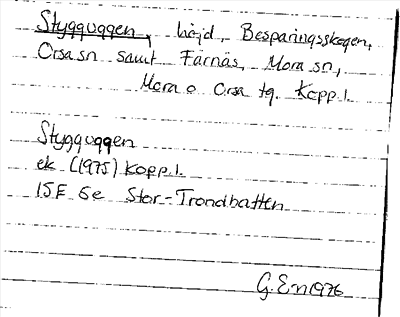 Styggvggen, höjd, Besparingsskogen,
Orsa sn samt Färnäs, Mora sn,
Mora o Orsa tg. Kopp.l.
Styggvggen
ek (1975) Kopp.l.
15F 6e Stor-Trondhatten
G. En 1976